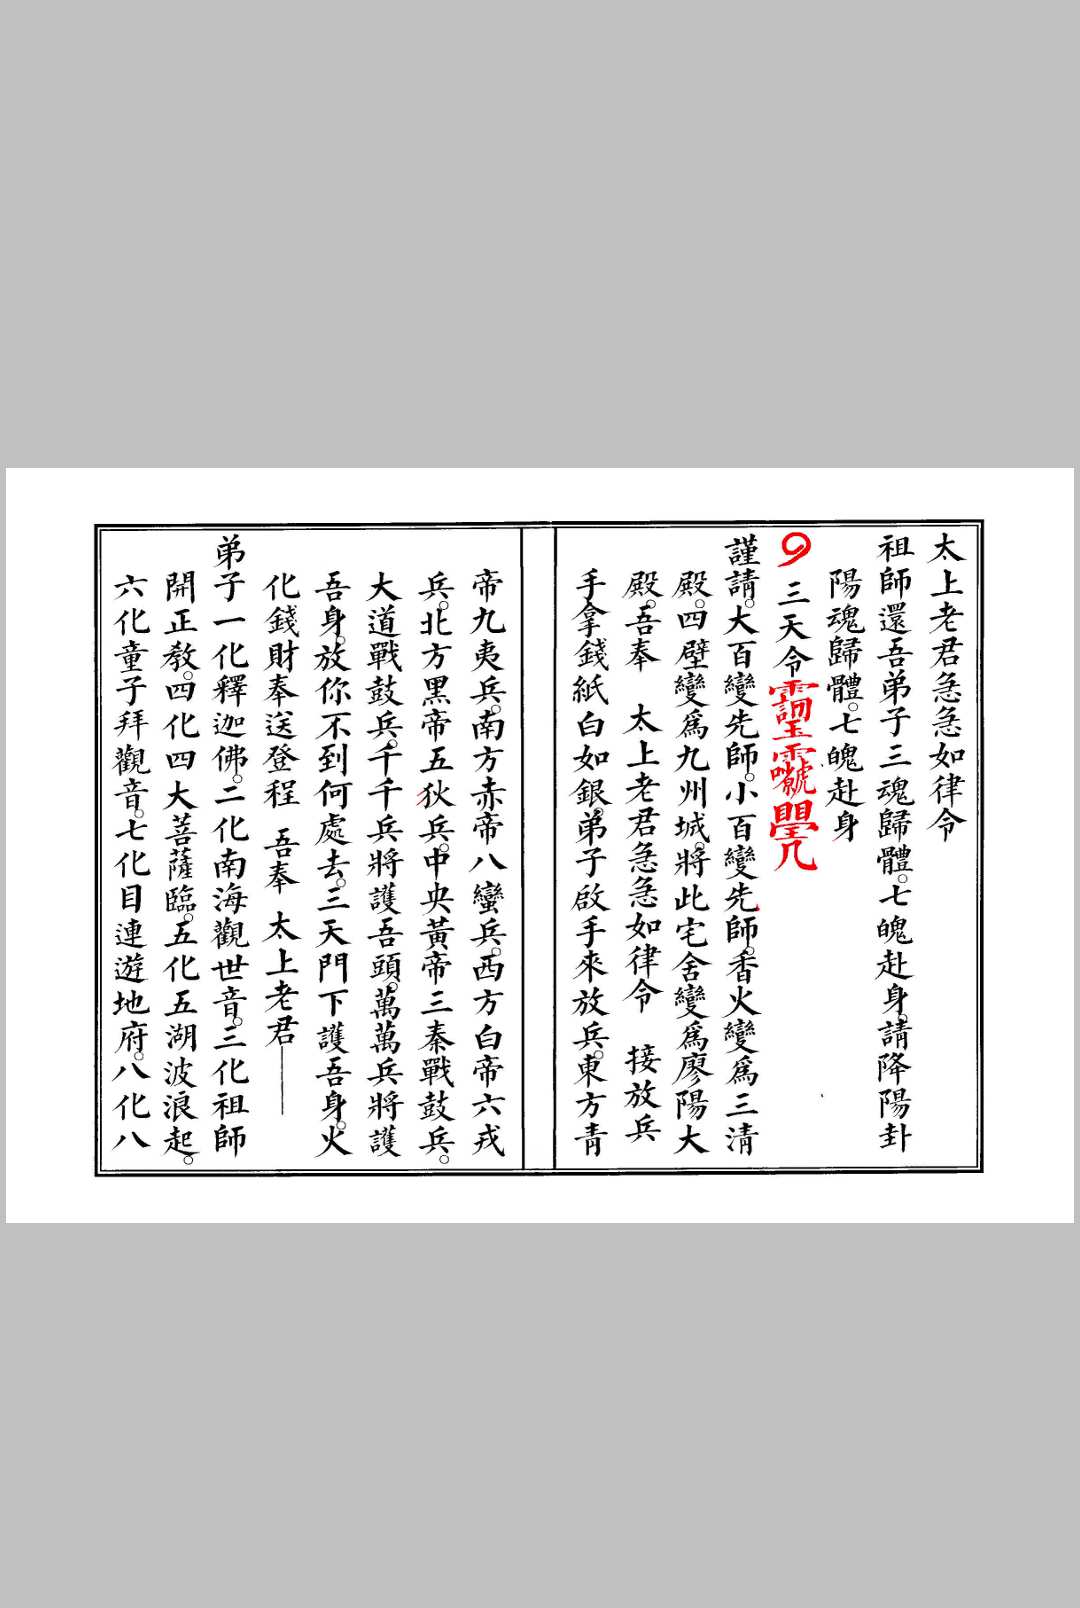 太上老君急急如律令
祖師還吾弟子三魂歸體。七魄赴身。請降陽卦
陽魂歸體。七魄赴身
三天令
謹請。大百變先師。小百變先師。香火變為三清
殿。四壁變為九州城。將此宅舍變為廖陽大
殿。吾奉 太上老君急急如律令 接放兵
手拿錢紙白如銀。弟子啟手來放兵。東方青
帝九夷兵。南方赤帝八蠻兵。西方白帝六戎
兵。北方黑帝五狄兵。中央黃帝三秦戰鼓兵。
大道戰鼓兵。千千兵將護吾頭。萬萬兵將護
吾身。放你不到何處去。三天門下護吾身。火
化錢財奉送登程 吾奉 太上老君——
弟子一化釋迦佛。二化南海觀世音。三化祖師
開正教。四化四大菩薩臨。五化五湖波浪起。
六化童子拜觀音。七化目連遊地府。八化八